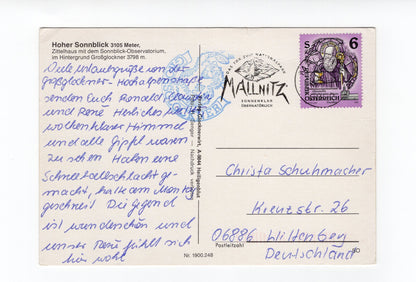 Hoher Sonnblick 3105 Meter,
Zittelhaus mit dem Sonnblick-Observatorium,
im Hintergrund Großglockner 3798 m.
Viele Urlaubsgrüße von der
Großglockner-Hochalpenstraße
senden Euch Ronald, Claudia
und René. Herliches
wochenklarer Himmel
und alle Gipfel waren
zu sehen. Haben eine
Schneeballschlacht ge-
macht, hatte am Montag
geschneit. Die Gegend
ist wunderschön und
unser René fühlt sich
hier wohl.
MALLNITZ
SONNENKLAR
ÜBERNATÜRLICH
S 6
REPUBLIK
ÖSTERREICH
A-9844 Heiligenblut
Nachdruck verboten
Christa Schuhmacher
Kreuzstr. 26
06886 Wittenberg
Deutschland
Postleitzahl
Nr. 1900.248